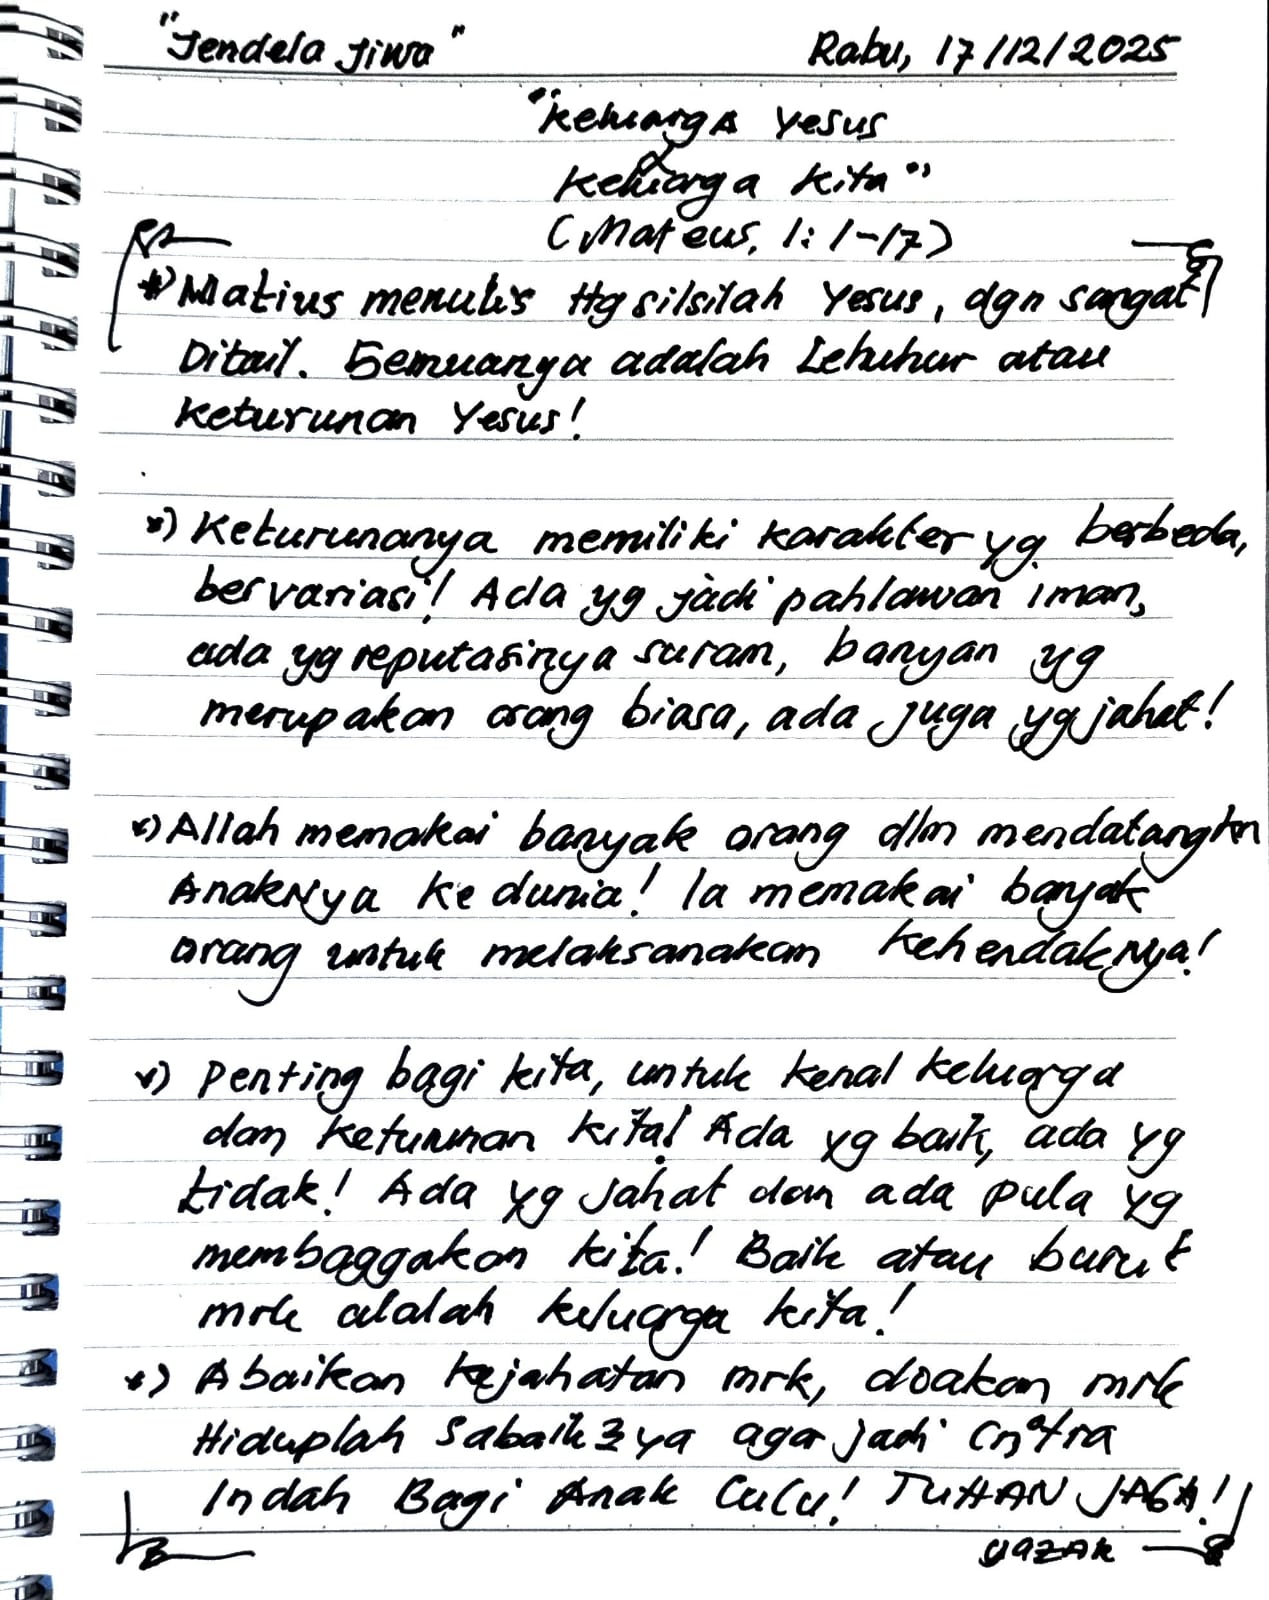 "Jendela Jiwa" Rabu, 17/12/2025
"Keluarga Yesus
&
Keluarga Kita"
(Mateus, 1:1-17)
*) Matius menulis ttg silsilah Yesus, dgn sangat
Ditail. Semuanya adalah Leluhur atau
Keturunan Yesus!
*) Keturunanya memiliki karakter yg berbeda,
bervariasi! Ada yg jadi pahlawan iman,
ada yg reputasinya suram, banyan yg
merupakan orang biasa, ada juga yg jahat!
*) Allah memakai banyak orang dlm mendatangkn
AnakNya ke dunia! Ia memakai banyak
orang untuk melaksanakan KehendakNya!
*) Penting bagi kita, untuk kenal keluarga
dan keturunan kita! Ada yg baik, ada yg
tidak! Ada yg Jahat dan ada pula yg
membaggakan kita! Baik atau buruk
mrk adalah keluarga kita!
*) Abaikan kejahatan mrk, doakan mrk
Hiduplah Sabaik2ya agar jadi
Indah Bagi Anak Cucu! TUHAN JAGA!
YAZAK